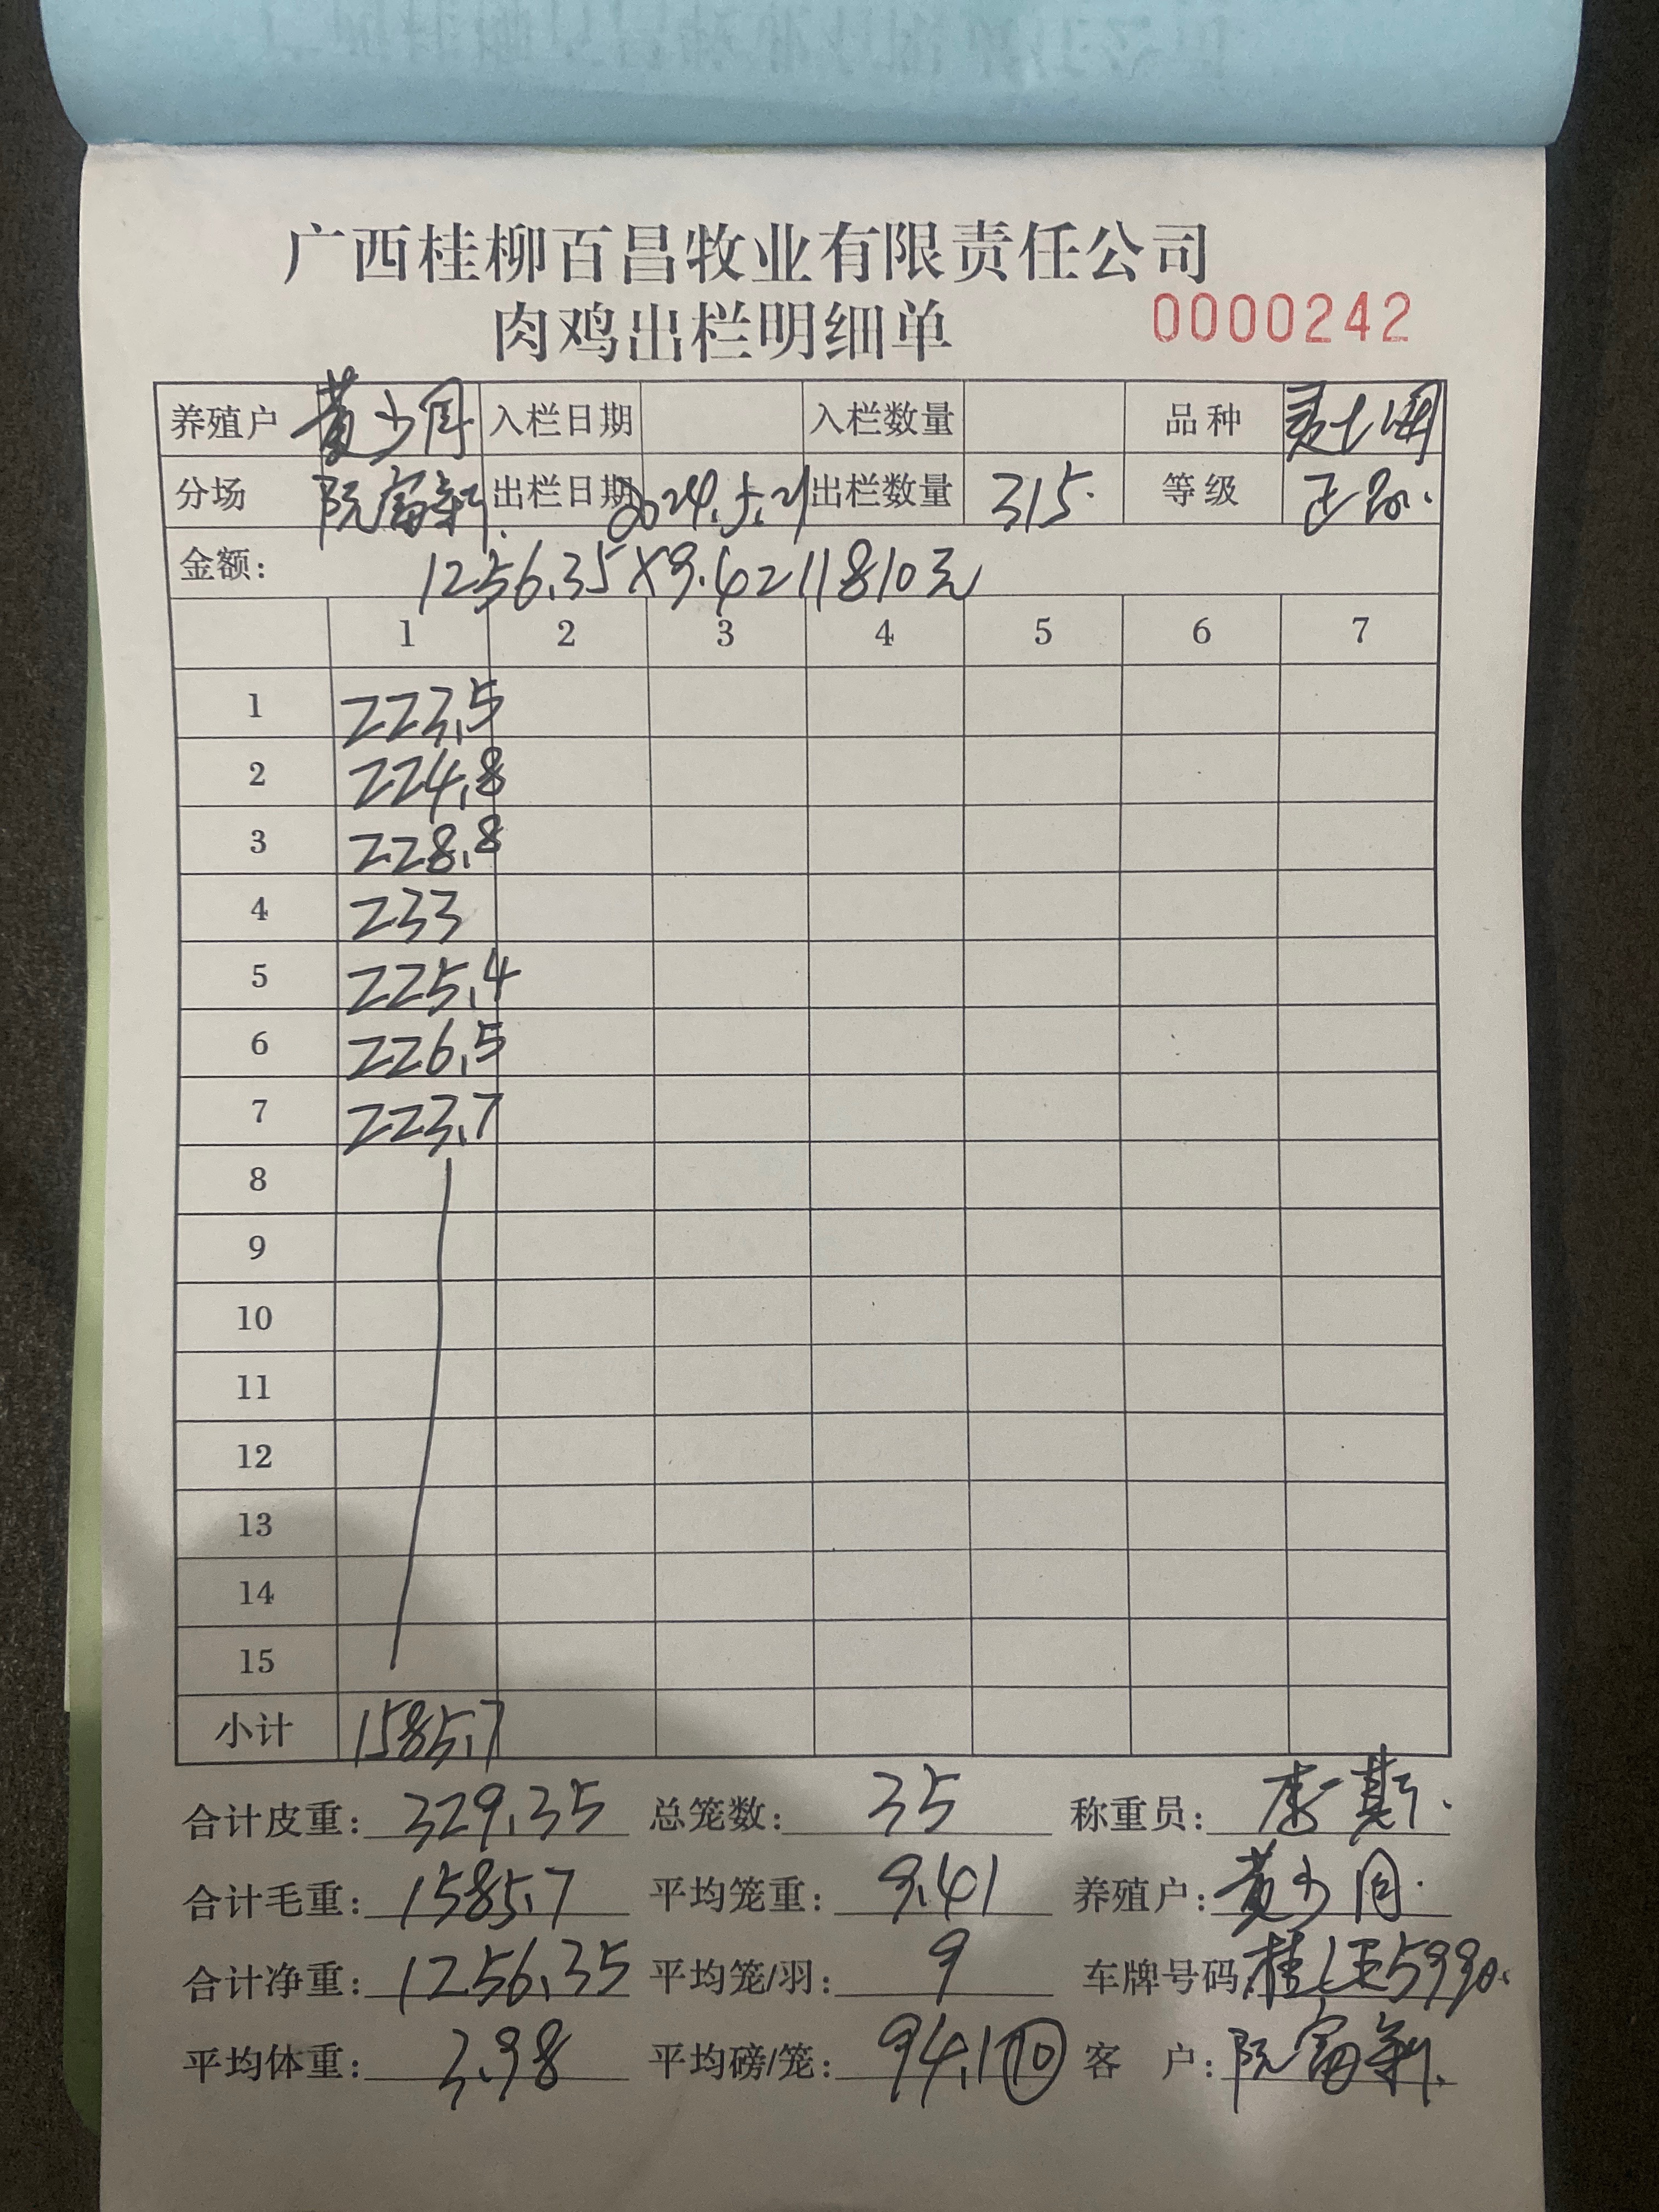 广西桂柳百昌牧业有限责任公司
肉鸡出栏明细单 0000242
养殖户 黄少周 入栏日期 入栏数量 品种
分场 阮富新 出栏日期 2024.5.21 出栏数量 315 等级 正品
金额: 1256.35×9.4=11810元
1 2 3 4 5 6 7
1 223.5
2 224.8
3 228.8
4 233
5 225.4
6 226.5
7 223.7
8
9
10
11
12
13
14
15
小计 1585.7
合计皮重: 329.35 总笼数: 35 称重员:
合计毛重: 1585.7 平均笼重: 9.41 养殖户: 黄少周
合计净重: 1256.35 平均笼/羽: 9 车牌号码:
平均体重: 3.98 平均磅/笼: 94.1 10 客 户: 阮富新